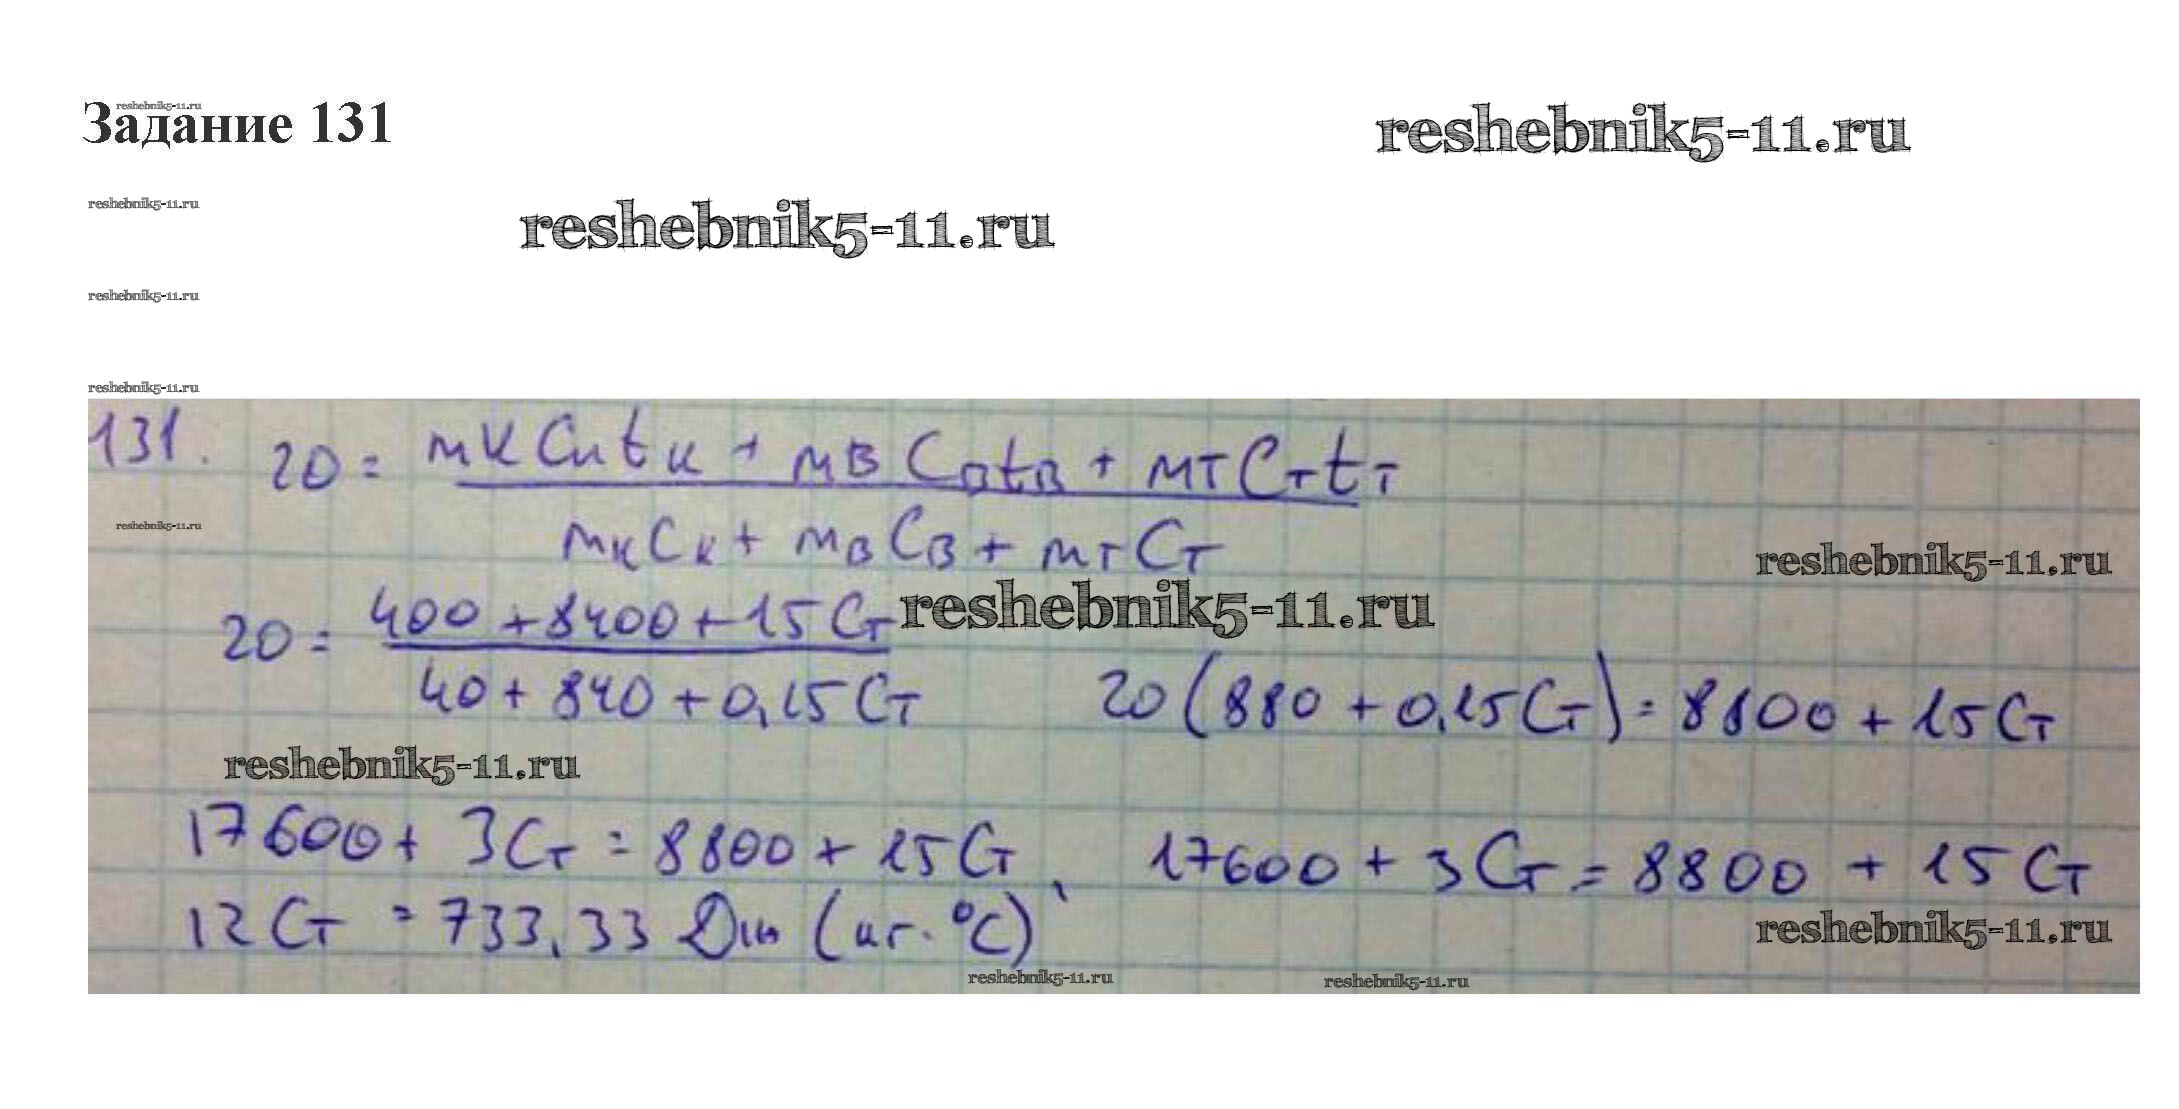 Задание 131
reshebnik5-11.ru
reshebnik5-11.ru
reshebnik5-11.ru
reshebnik5-11.ru
reshebnik5-11.ru
reshebnik5-11.ru
131. 20 = mк Cк tк + mв Cв tв + mт Cт tт
reshebnik5-11.ru
mк Cк + mв Cв + mт Cт
reshebnik5-11.ru
20 = 400 + 8400 + 15 Cт
reshebnik5-11.ru
40 + 840 + 0,15 Cт 20 (880 + 0,15 Cт) = 8800 + 15 Cт
reshebnik5-11.ru
17600 + 3 Cт = 8800 + 15 Cт, 17600 + 3 Cт = 8800 + 15 Cт
12 Cт = 733,33 Дж (кг·°C)
reshebnik5-11.ru
reshebnik5-11.ru
reshebnik5-11.ru